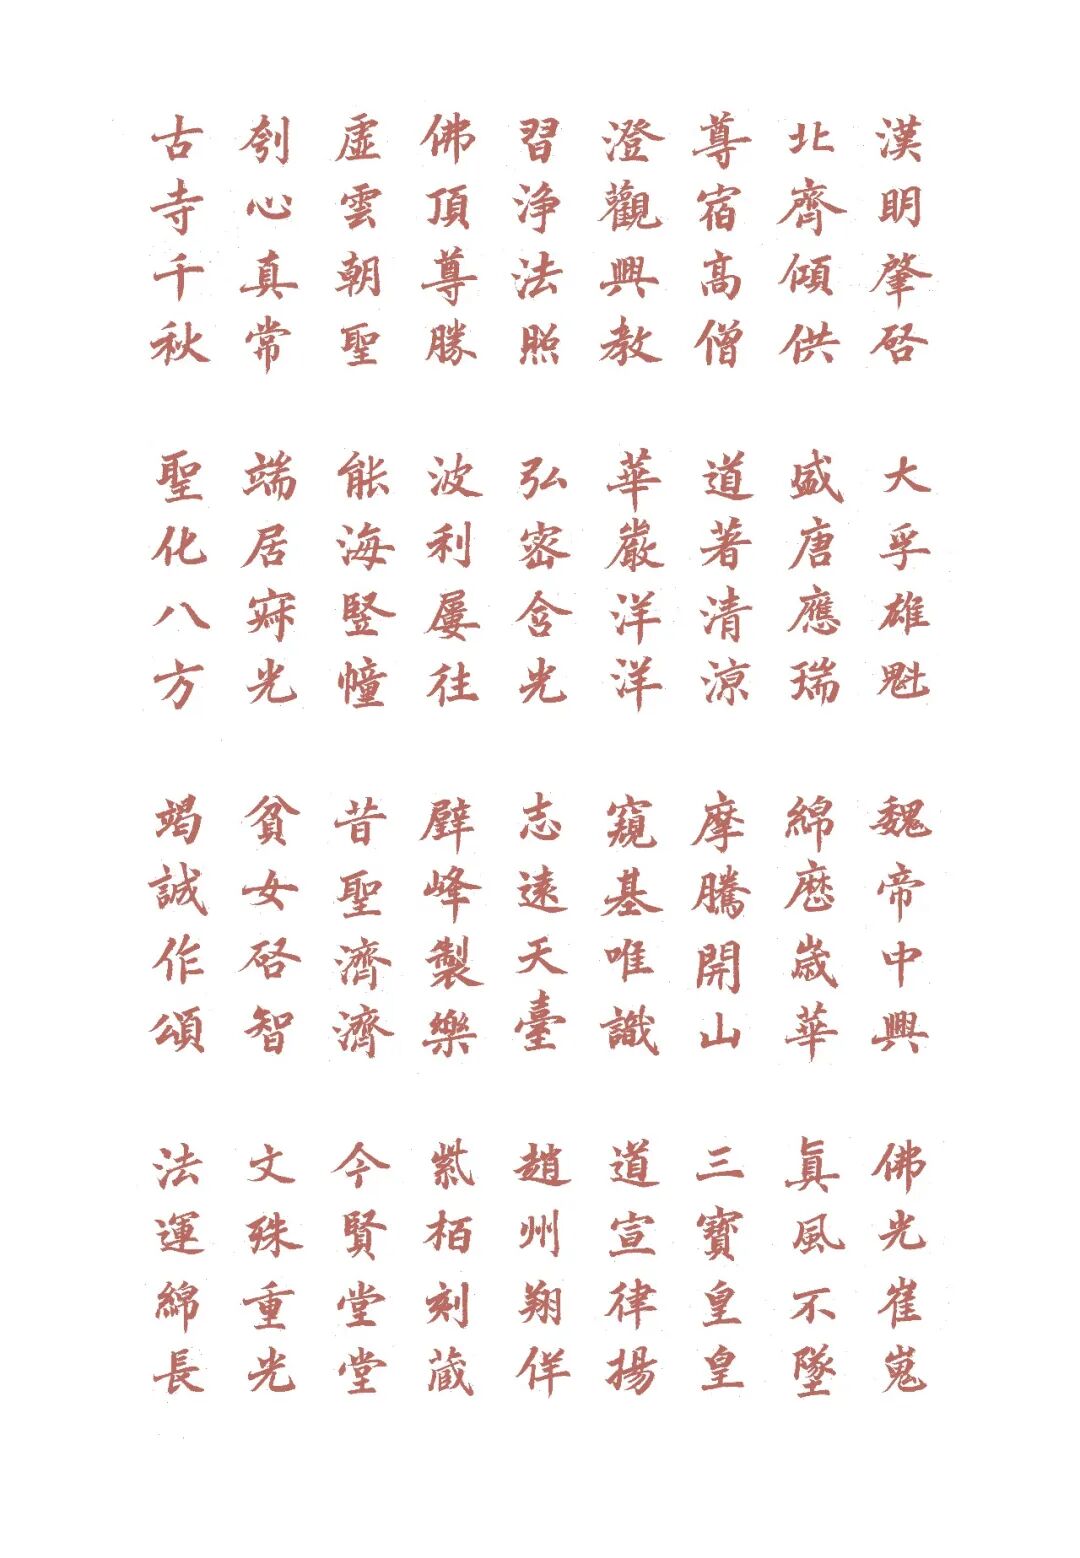 漢明肇启 大孚雄魁 魏帝中興 佛光崔嵬
北齊傾供 盛唐應瑞 綿歷歲華 眞風不墜
尊宿高僧 道著清涼 摩騰開山 三寶皇皇
澄觀興教 華嚴洋洋 窺基唯識 道宣律揚
習浄法照 弘密含光 志遠天臺 趙州翔佯
佛頂尊勝 波利屢往 壁峰製樂 紫栢刻藏
虛雲朝聖 能海豎幢 昔聖濟濟 今賢堂堂
刳心真常 端居寂光 貧女启智 文殊重光
古寺千秋 聖化八方 竭誠作頌 法運綿長